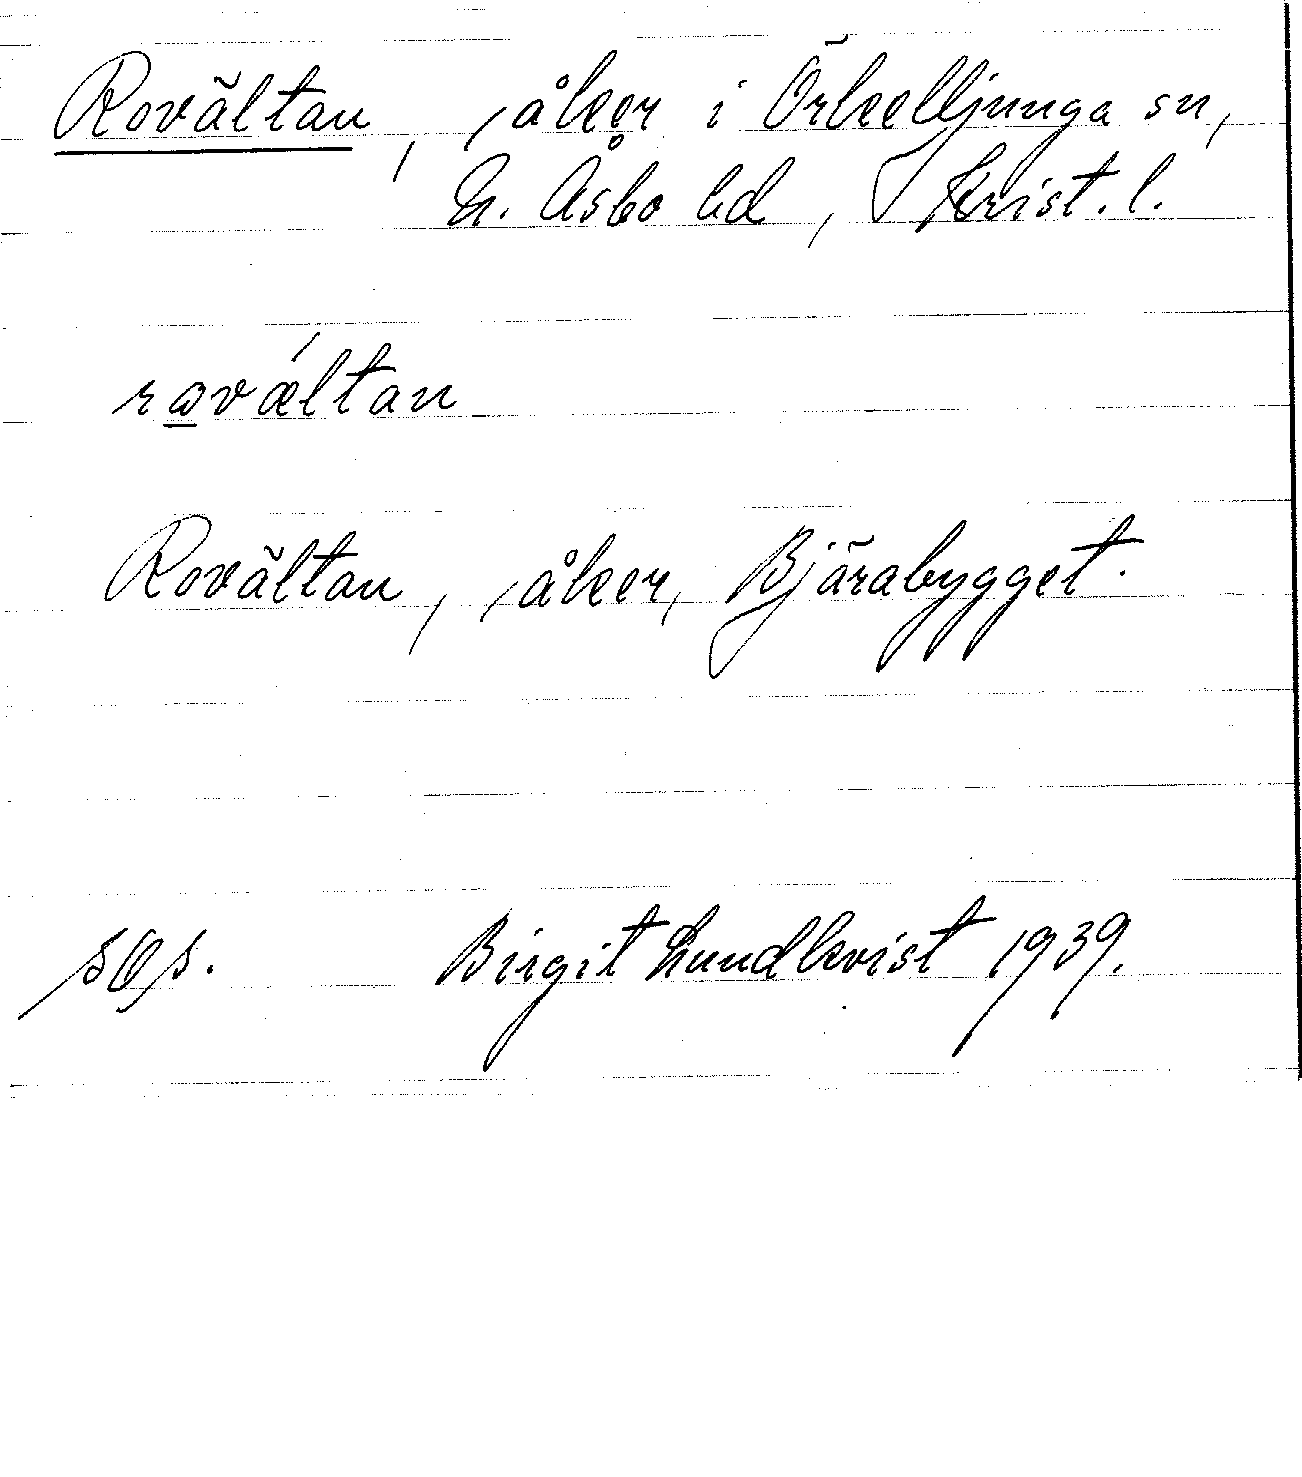 Rovältan, åker i Örkelljunga sn,
N. Åsbo hd, Krist. l.
rovæ´ltan
Rovältan, åker, Bjärabygget.
Birgit Lundkvist 1939.